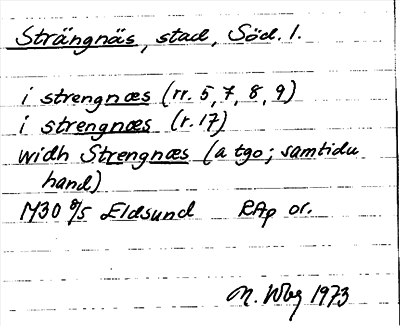 Strängnäs, stad, Söd. l.
i strengnæs (rr. 5, 7, 8, 9)
i strengnæs (r. 17)
widh Strengnæs (a tgo; samtida
hand)
1430 8/5 Eldsund RAp or.
M. Wbg 1973